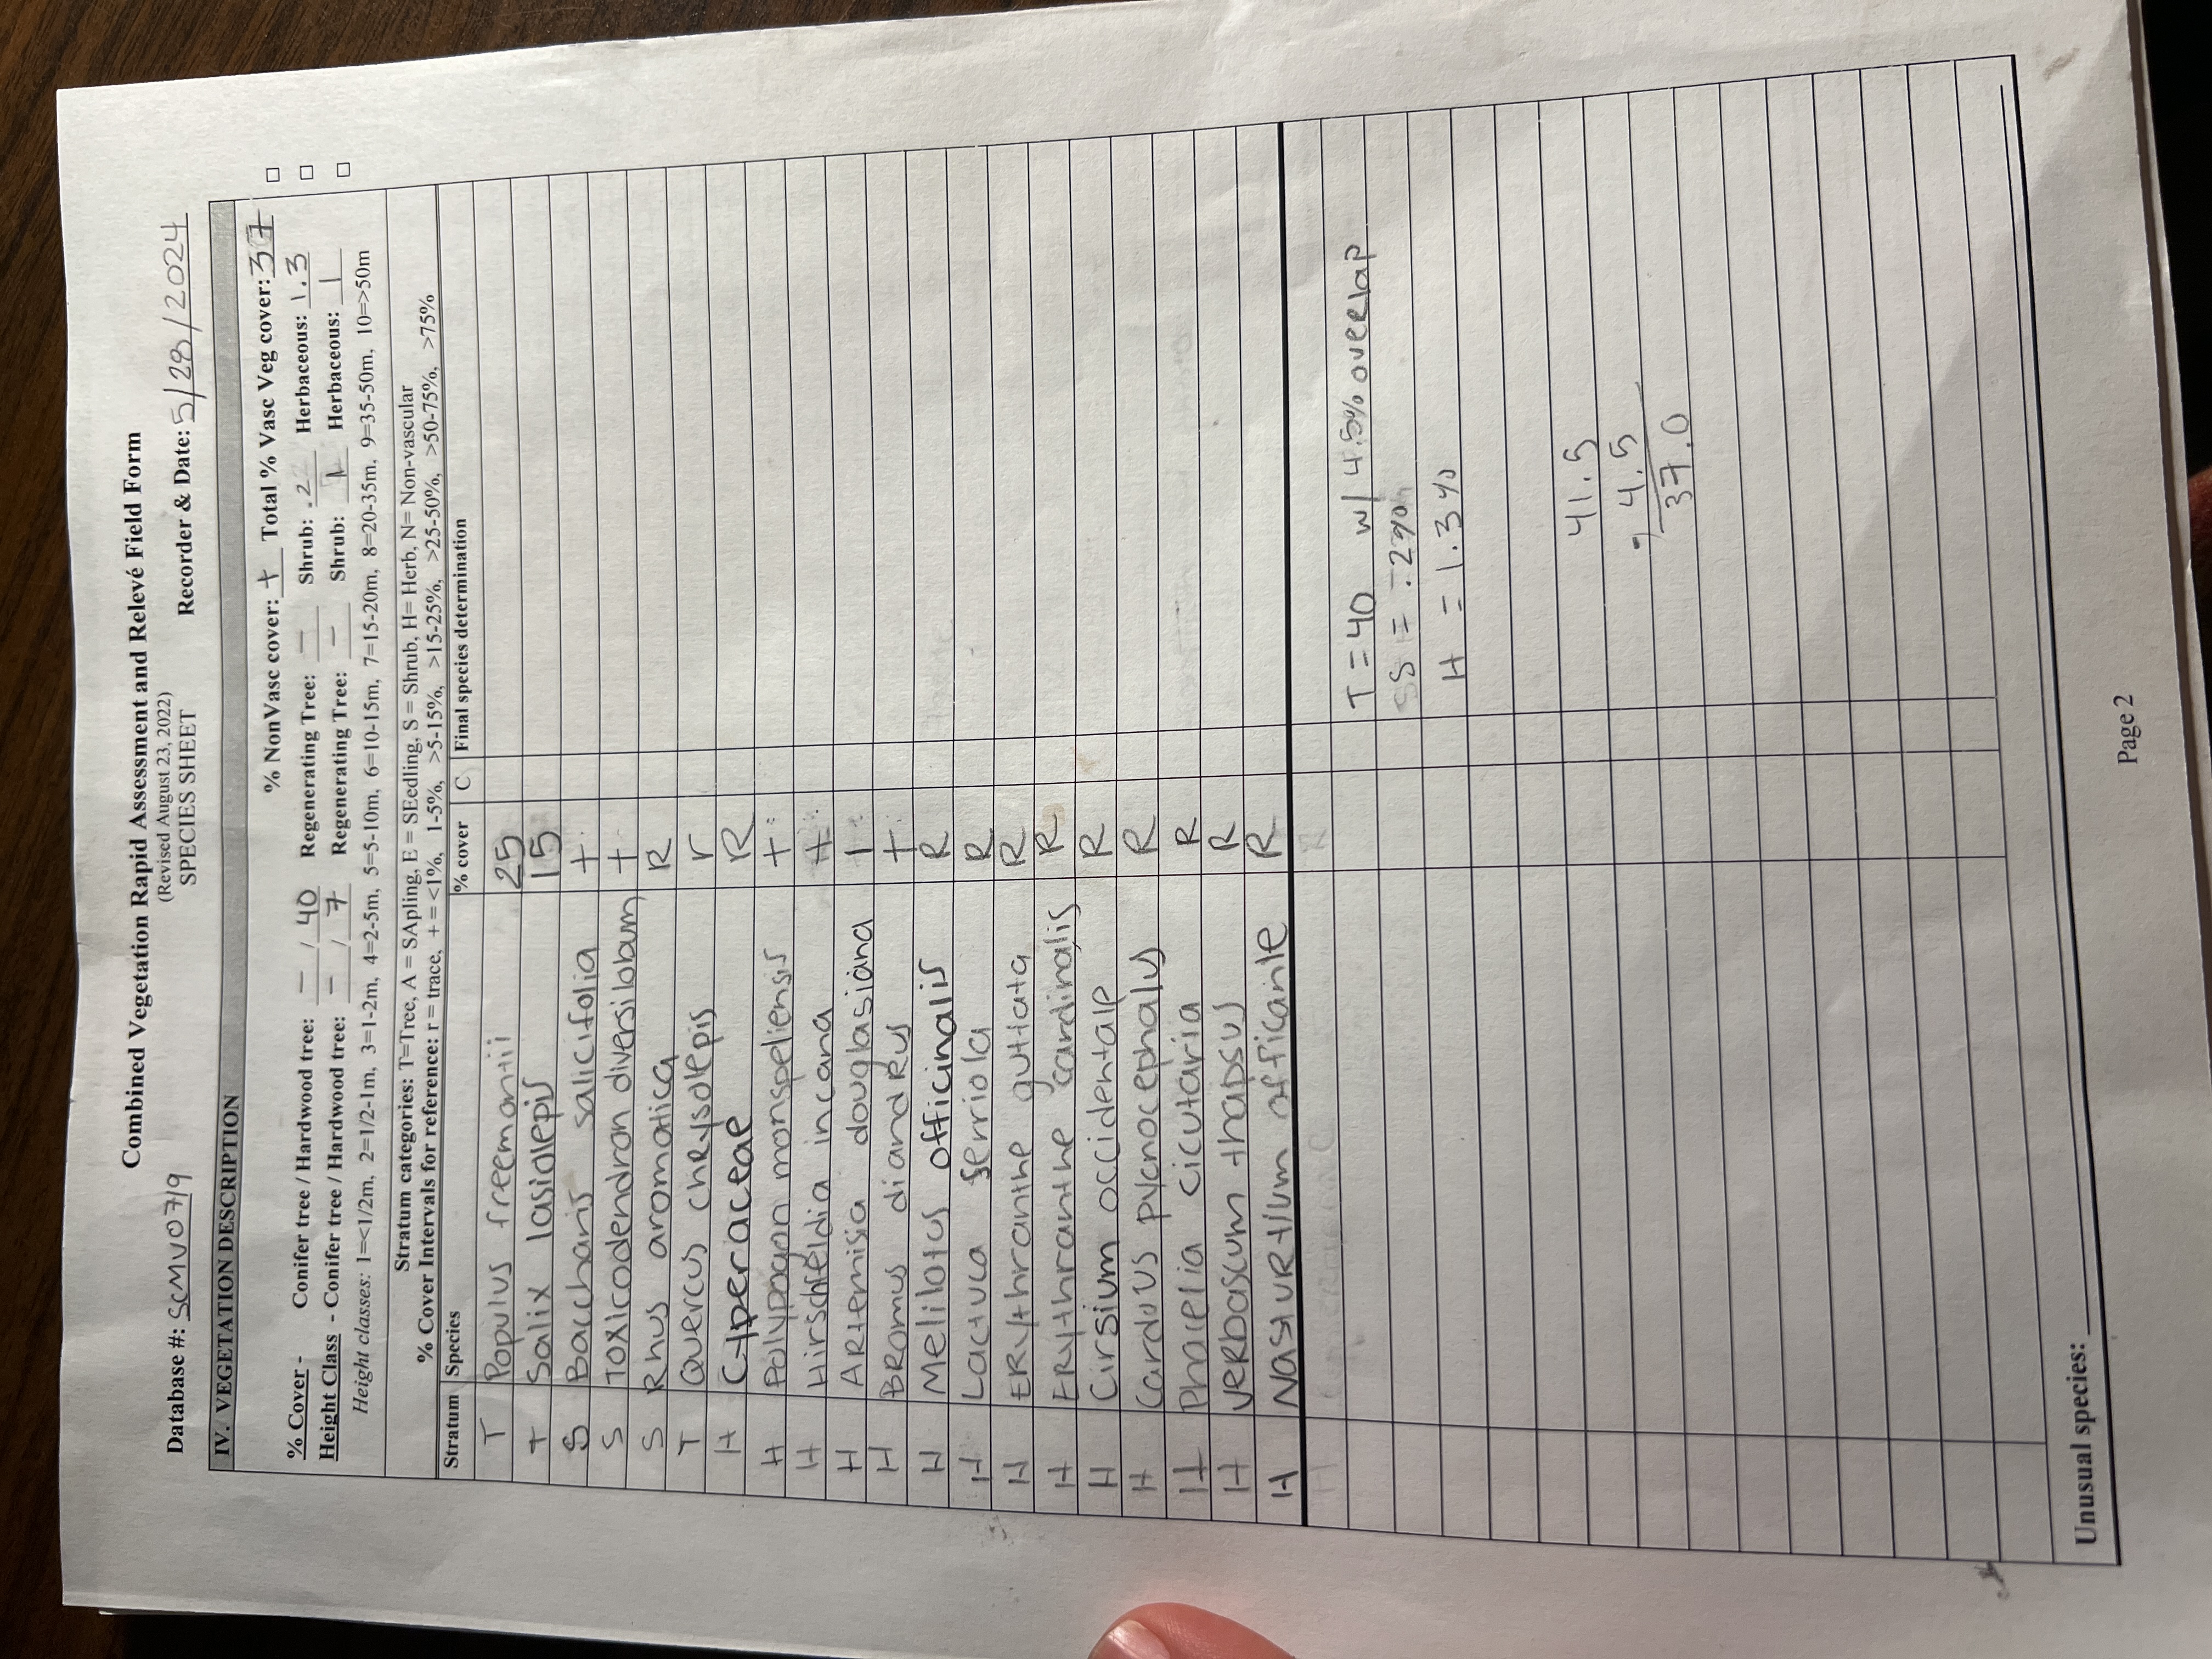 Combined Vegetation Rapid Assessment and Relevé Field Form
(Revised August 23, 2022)
Database #: SCMV0719 SPECIES SHEET Recorder & Date: 5/28/2024
IV. VEGETATION DESCRIPTION
% NonVasc cover: + Total % Vasc Veg cover: 37
% Cover - Conifer tree / Hardwood tree: — / 40 Regenerating Tree: — Shrub: .2 Herbaceous: 1.3
Height Class - Conifer tree / Hardwood tree: — / 7 Regenerating Tree: — Shrub: 1 Herbaceous: 1
Height classes: 1=<1/2m, 2=1/2-1m, 3=1-2m, 4=2-5m, 5=5-10m, 6=10-15m, 7=15-20m, 8=20-35m, 9=35-50m, 10=>50m
Stratum categories: T=Tree, A = SApling, E = SEedling, S = Shrub, H= Herb, N= Non-vascular
% Cover Intervals for reference: r = trace, + = <1%, 1-5%, >5-15%, >15-25%, >25-50%, >50-75%, >75%
Stratum Species % cover C Final species determination
T Populus freemontii 25
T Salix lasiolepis 15
S Baccharis salicifolia +
S Toxicodendron diversilobum +
S Rhus aromatica R
T Quercus chrysolepis r
H Cyperaceae R
H Polypogon monspeliensis +
H Hirschfeldia incana +
H Artemisia douglasiana 1
H Bromus diandrus +
H Melilotus officinalis R
H Lactuca serriola R
H Erythranthe guttata R
H Erythranthe cardinalis R
H Cirsium occidentalp R
H Carduus pycnocephalus R
H Phacelia cicutaria R
H Verbascum thapsus R
H Nasturtium officanle R
T = 40 w/ 4.5% overlap
S = .2%
H = 1.3%
41.5
- 4.5
37.0
Unusual species:
Page 2